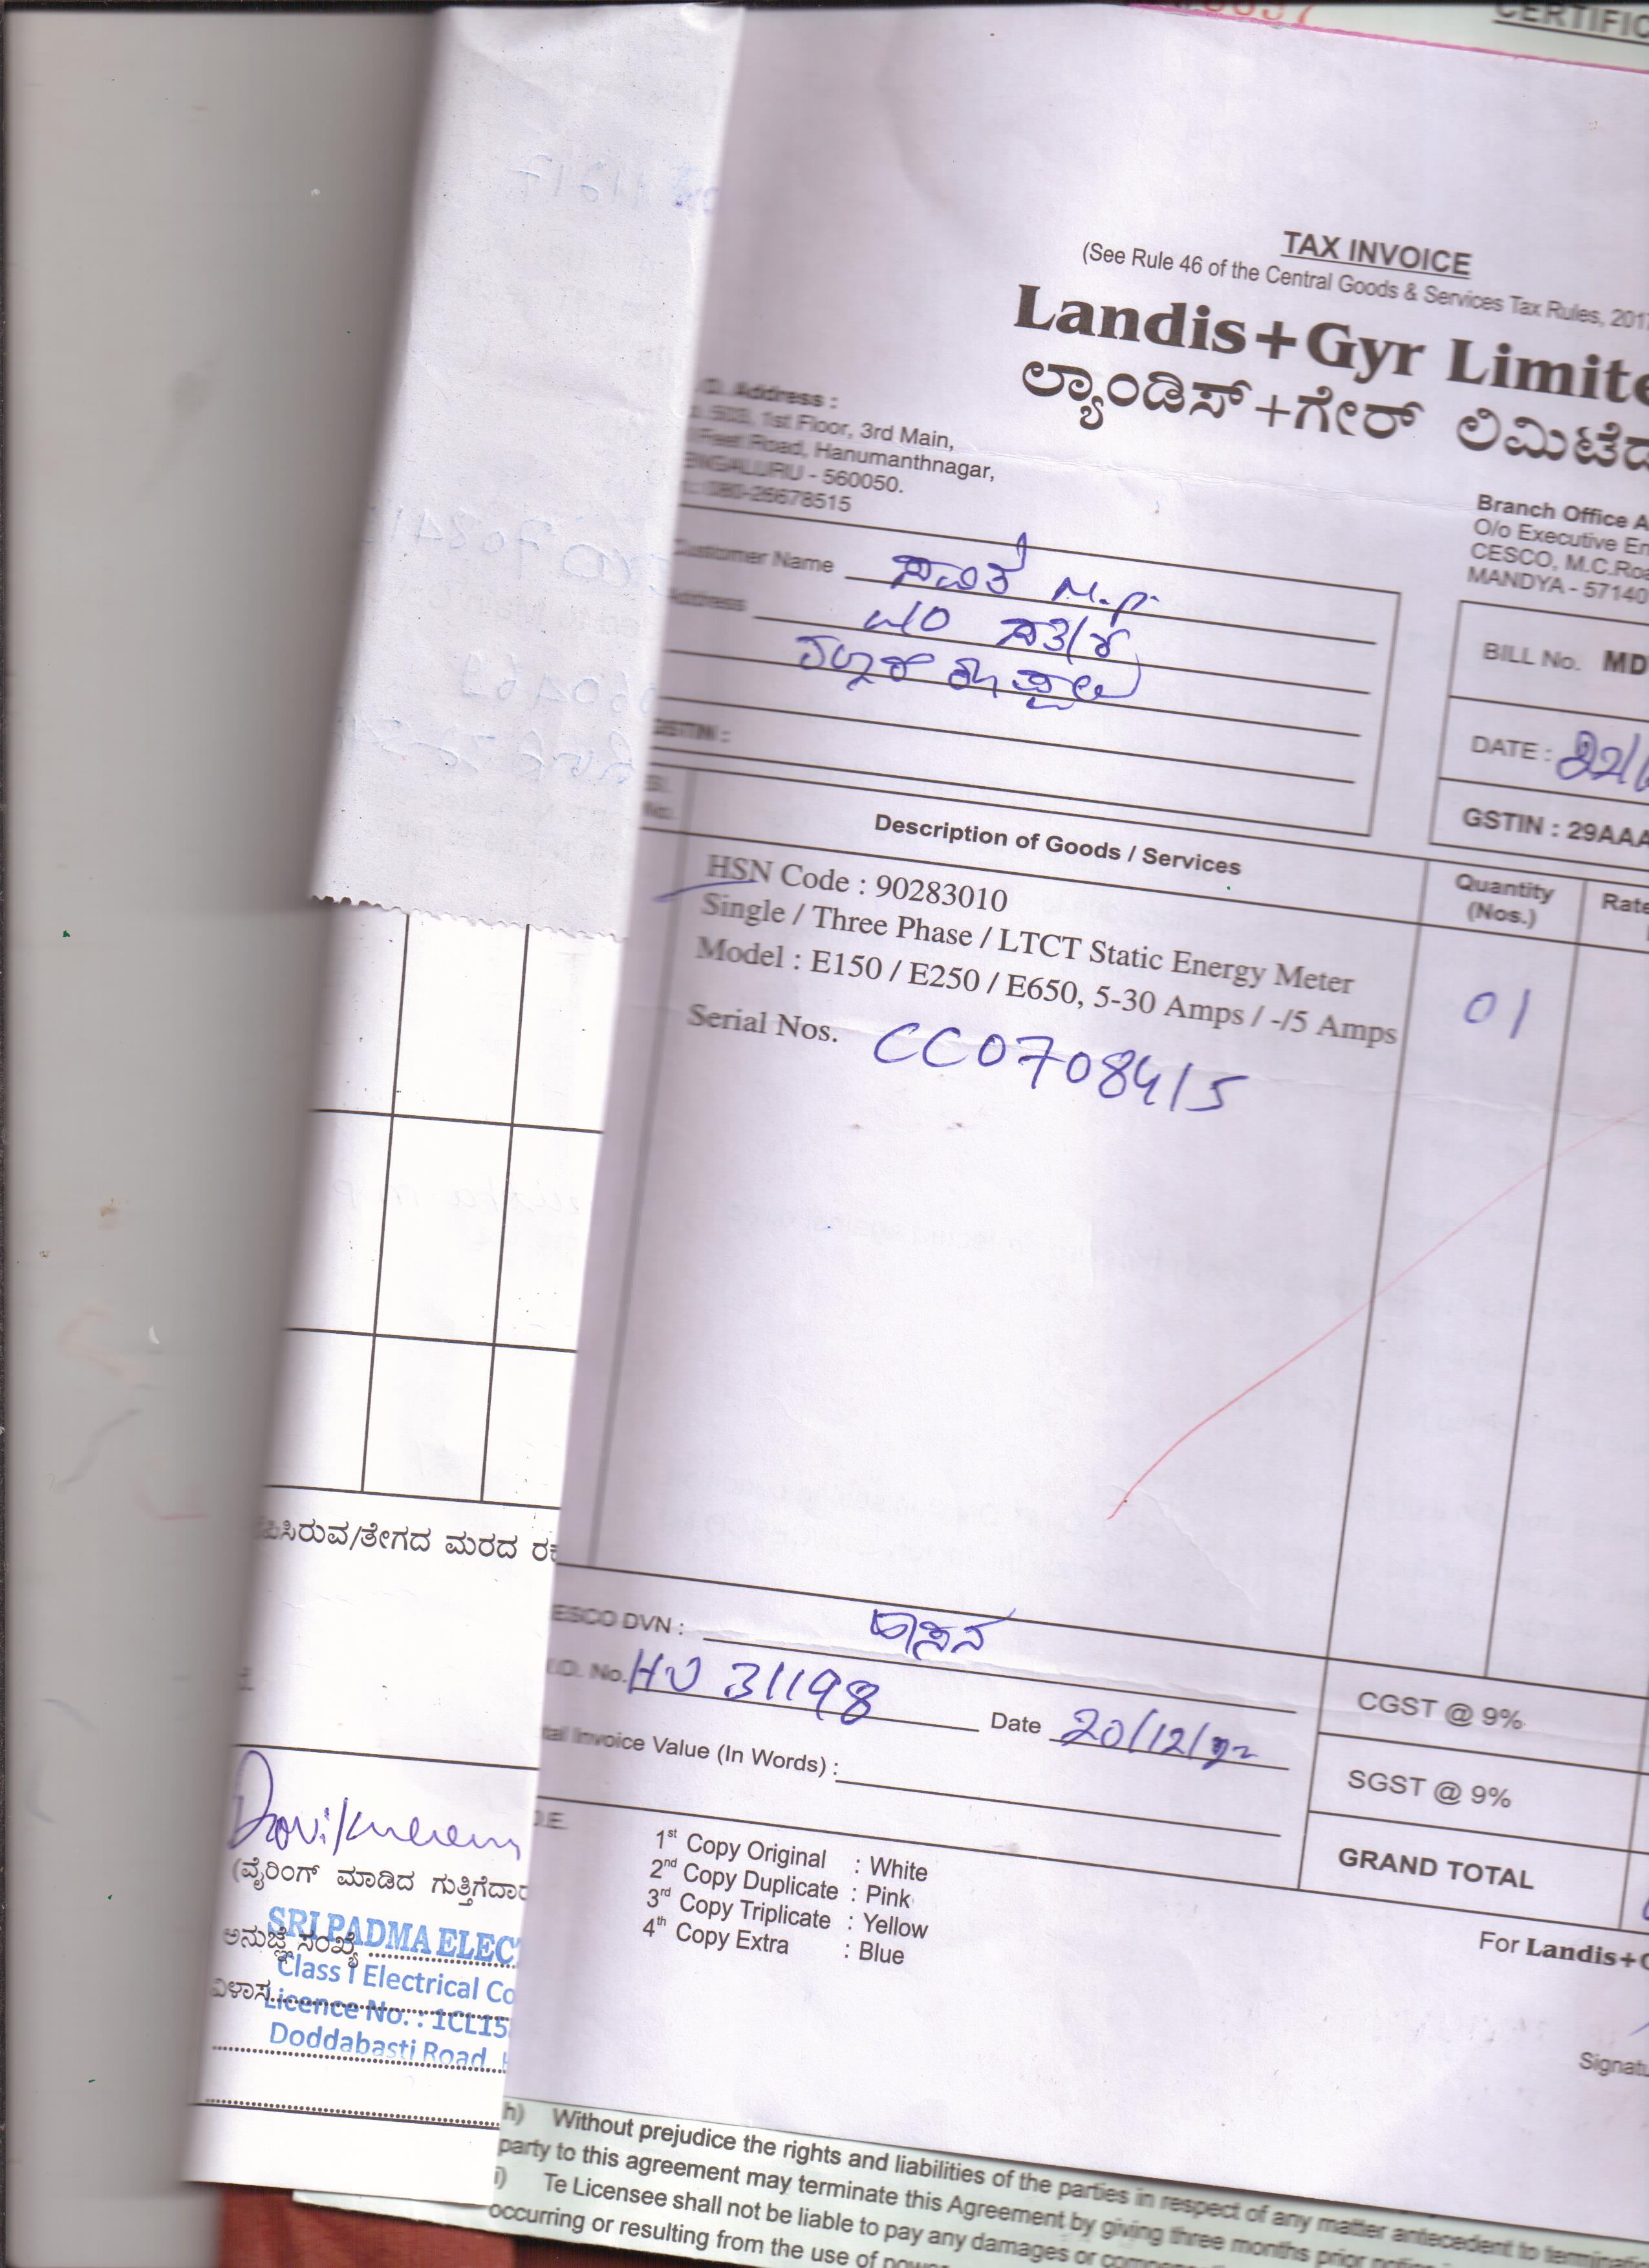 CERTIFIC
TAX INVOICE
(See Rule 46 of the Central Goods & Services Tax Rules, 2017
Landis+Gyr Limite
ಲ್ಯಾಂಡಿಸ್+ಗೇರ್ ಲಿಮಿಟೆಡ
Address :
503, 1st Floor, 3rd Main,
Feet Road, Hanumanthnagar,
ENGALURU - 560050.
080-26678515
Branch Office A
O/o Executive En
CESCO, M.C.Roa
MANDYA - 57140
Customer Name ಸವಿತ M.P.
Address W/O
BILL No. MD
DATE : 22/
GSTIN :
GSTIN : 29AAA
Sl. No.
Description of Goods / Services
Quantity (Nos.)
Rate
HSN Code : 90283010
Single / Three Phase / LTCT Static Energy Meter
Model : E150 / E250 / E650, 5-30 Amps / -/5 Amps
01
Serial Nos. CC0708415
ESCO DVN : ಹಾಸನ
.O. No. HU 31198 Date 20/12/22
tal Invoice Value (In Words) :
CGST @ 9%
SGST @ 9%
GRAND TOTAL
.E.
1st Copy Original : White
2nd Copy Duplicate : Pink
3rd Copy Triplicate : Yellow
4th Copy Extra : Blue
For Landis+G
Signatu
ಪಿಸಿರುವ/ತೇಗದ ಮರದ ರಕ
(ವೈರಿಂಗ್ ಮಾಡಿದ ಗುತ್ತಿಗೆದಾರ
ಅನುಜ್ಞೆ ಸಂಖ್ಯೆ
SRI PADMA ELEC
Class I Electrical Co
ವಿಳಾಸ
Licence No. : 1CL15
Doddabasti Road
h) Without prejudice the rights and liabilities of the parties in respect of any matter antecedent to terminat
party to this agreement may terminate this Agreement by giving three months prior
i) Te Licensee shall not be liable to pay any damages or
occurring or resulting from the use of